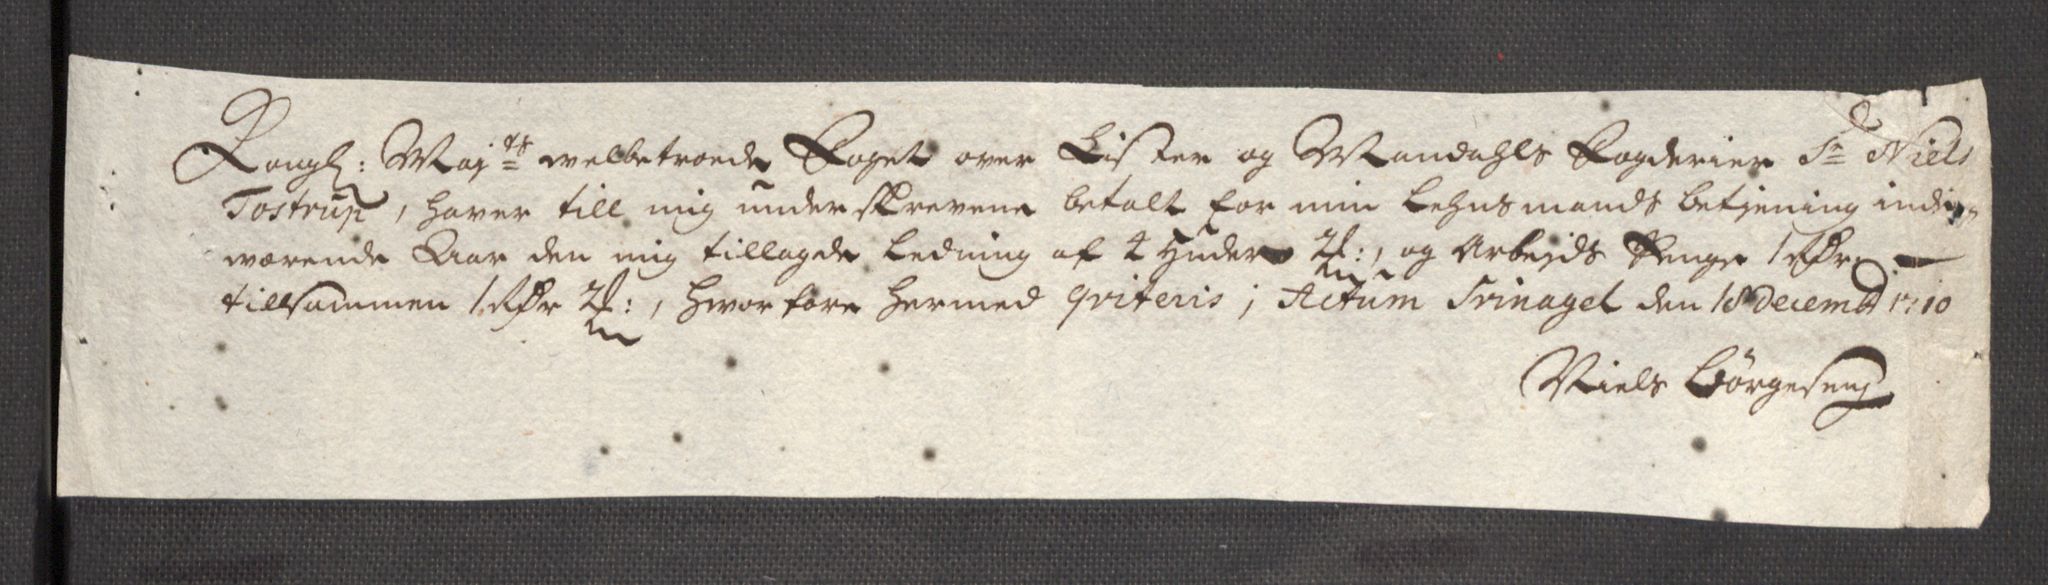 Kongl: Maj.ts welbetroede Foget over Lister og Mandahls Fogderier Sr Niels
Tostrup, haver till mig underskrevene betalt for min Lehnsmands betiening inde
værende Aar den mig tillagde Ledning af 2 Huder og Arbejds Penge 1 Rdr
tillsammen 1 Rdr hvorfore hermed qviteris; Actum Svinaget den 18 decembr 1710
Niels Börgeseng